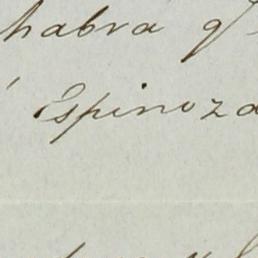 habra q
Espinoza